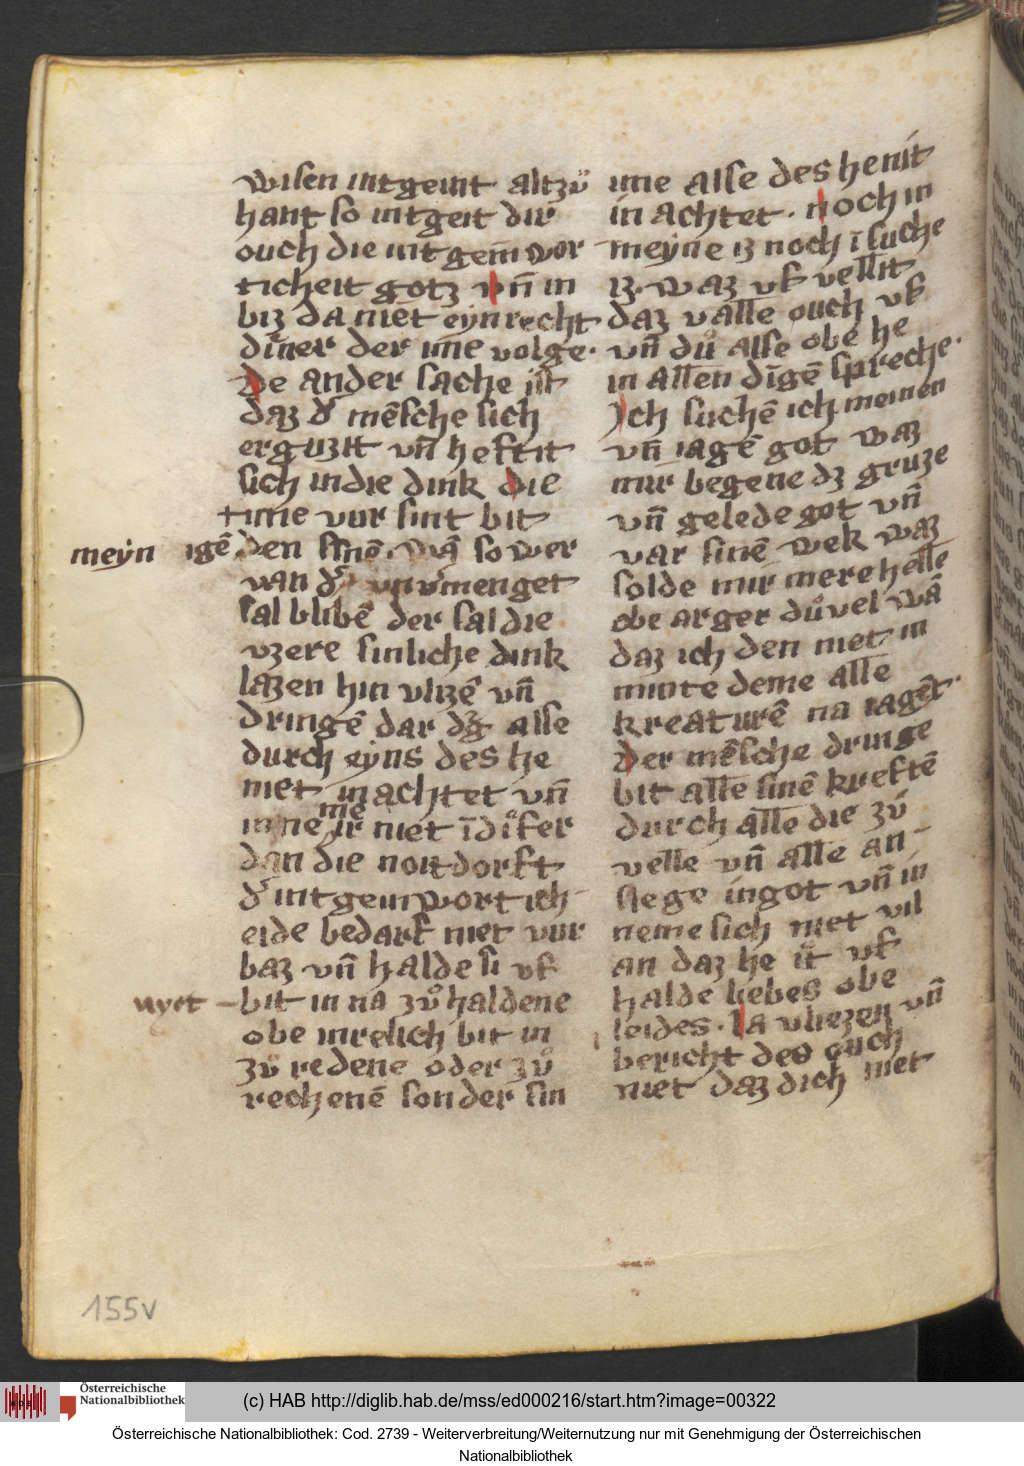 wisen intgeint altzuͦ
hant so intgeit dir
ouch die intgein wor
ticheit gotz vn̄ in
biz da niet eyn recht
diner der ime volge.
De ander sache ist
daz d' mēsche sich
erguzit vn̄ heftit
sich indie dink die
time vur sint bit
meyn igē den sinē. wā so wer
van d' vnv'menget
sal blibē der sal die
vzere sinliche dink
lazen hin vlizē vn̄
dringē dar dz alse
durch eyns des he
niet in achtet vn̄
me
in ne ir niet ī diͤfer
dan die noit dorft
d' intgeinwortich
eide bedarf niet vur
baz vn̄ halde si vf
nyet bit in na zuͦ haldene
obe inrelich bit in
zuͦ redene oder zuͦ
rechenē sonder sin
ime alse des he nit
in achtet. noch in
meyne iz noch ī suche
iz. waz vf vellit
daz valle ouch vf
vn̄ duͦ alse obe he
in allen digē spreche.
Ich suchē ich meinen
vn̄ iagē got waz
mir begene dz gruze
vn̄ gelede got vn̄
var sinē wek waz
solde mir mere helle
obe arger duͦvel wā
daz ich den niet in
minte deme alle
kreaturē na iagēt.
der mēsche dringe
bit alle sinē kreftē
durch alle die zu
velle vn̄ alle an
siege in got vn̄ in
neme sich niet vil
an daz he it vf
halde liebes obe
leides. Ia vliezen vn̄
bericht des ouch
niet daz dich niet
155v
Österreichische
Nationalbibliothek
(c) HAB http://diglib.hab.de/mss/ed000216/start.htm?image=00322
Österreichische Nationalbibliothek: Cod. 2739 - Weiterverbreitung/Weiternutzung nur mit Genehmigung der Österreichischen
Nationalbibliothek